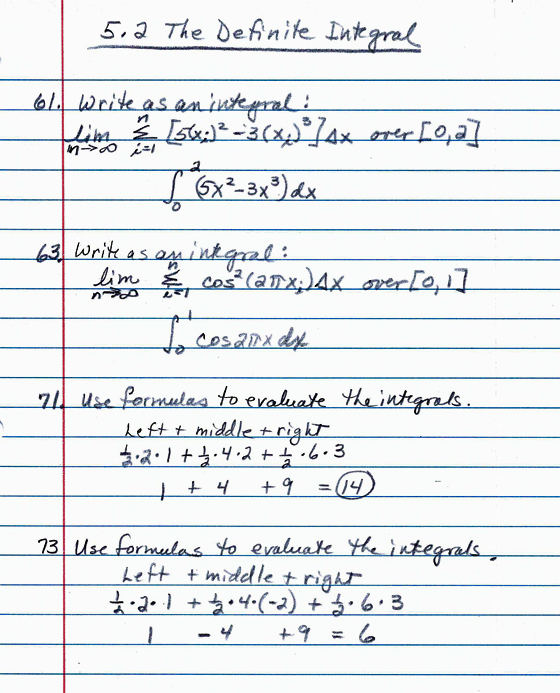 5.2 The Definite Integral
61. Write as an integral:
lim n→∞ n Σ i=1 [5(xᵢ)² - 3(xᵢ)³] Δx over [0,2]
∫₀² (5x² - 3x³) dx
63. Write as an integral:
lim n→∞ n Σ i=1 cos²(2πxᵢ) Δx over [0,1]
∫₀¹ cos2πx dx
71. Use formulas to evaluate the integrals.
Left + middle + right
1/2·2·1 + 1/2·4·2 + 1/2·6·3
1 + 4 + 9 = 14
73 Use formulas to evaluate the integrals.
Left + middle + right
1/2·2·1 + 1/2·4·(-2) + 1/2·6·3
1 - 4 + 9 = 6